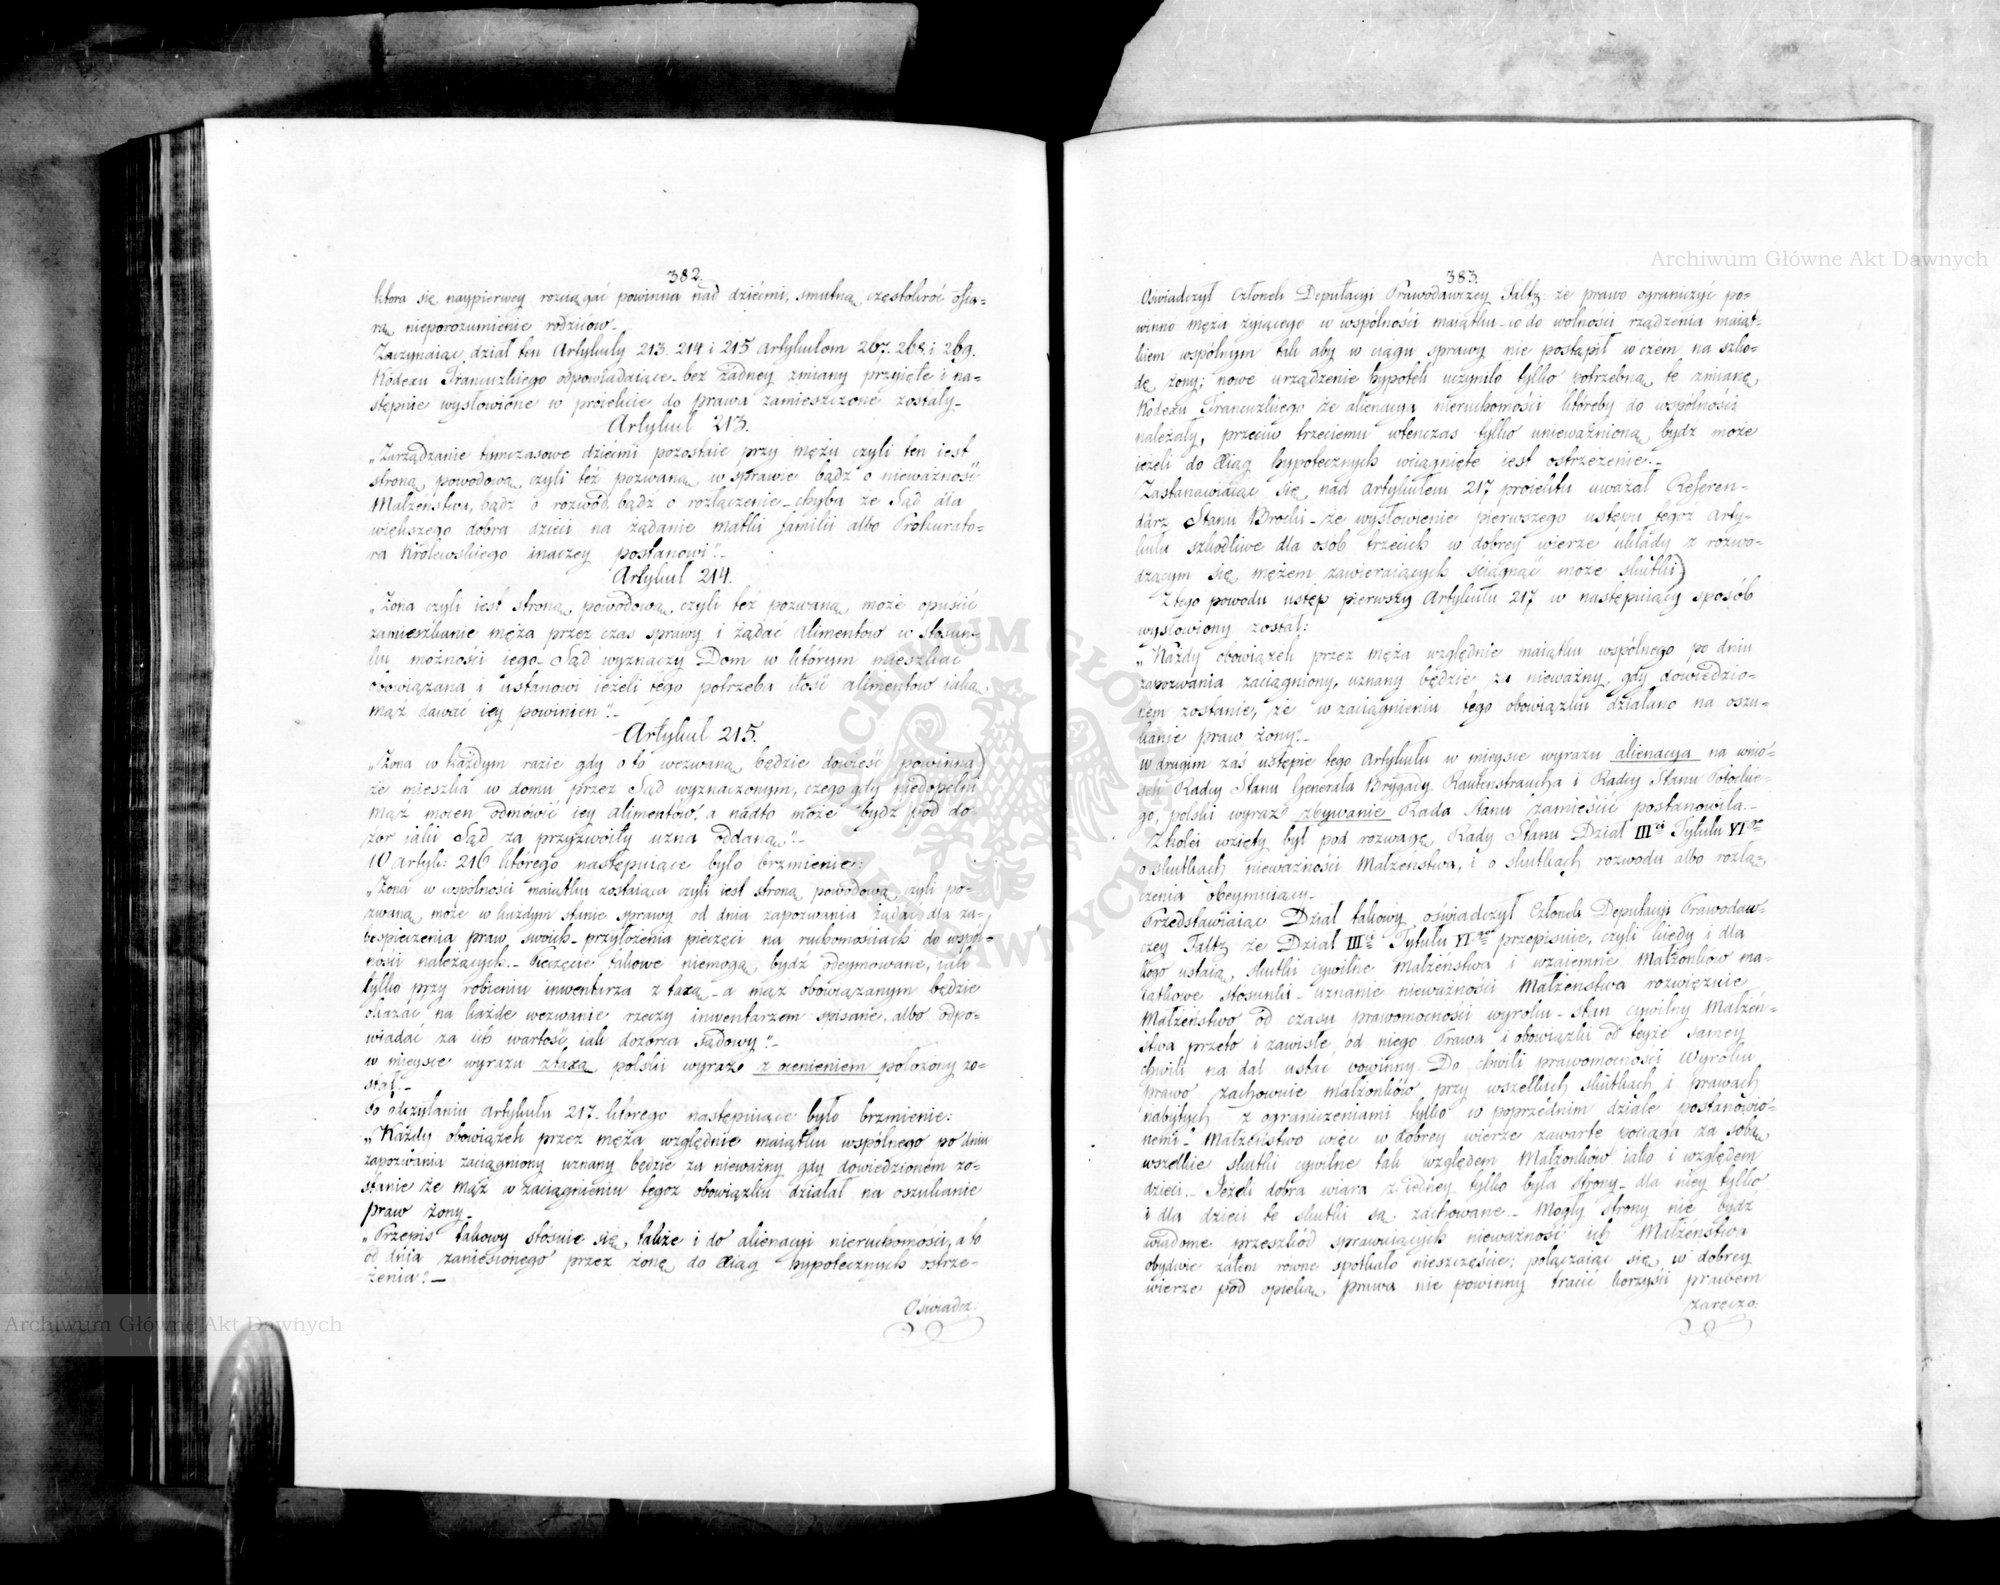 382.
ktora się naypierwey rozciągać powinna nad dziećmi, smutną częstokroć ofia-
rą nieporozumienie rodziców._
Zaczynaiąc dział ten Artykuły 213. 214 i 215 Artykułom 267. 268. i 269.
Kodexu Francuzkiego odpowiadaiące_ bez żadney zmiany przyięte i na-
stępnie wysłowione w proiekcie do prawa zamieszczone zostały_
Artykuł 213.
„Zarządzanie tymczasowe dziećmi pozostaie przy mężu czyli ten iest
stroną powodową, czyli też pozwaną w sprawie bądź o nieważność
Małżeństwa, bądź o rozwód, bądź o rozłączenie_ chyba że Sąd dla
większego dobra dzieci na żądanie matki familii albo Prokurato-
ra Królewskiego inaczey postanowi"._
Artykuł 214.
„Żona czyli iest stroną powodową, czyli też pozwaną może opuścić
zamieszkanie męża przez czas sprawy i żądać alimentow w stosun-
ku możności iego_ Sąd wyznaczy Dom w którym mieszkać
obowiązana i ustanowi ieżeli tego potrzeba ilość alimentów iaką
mąż dawać iey powinien"._
Artykuł 215.
„Żona w każdym razie gdy o to wezwaną będzie dowieść powinna)
że mieszka w domu przez Sąd wyznaczonym, czego gdy niedopełni
mąż mocen odmówić iey alimentów, a nadto może bydź pod do-
zor iaki Sąd za przyzwoity uzna oddaną"._
W Artyk: 216 którego następuiące było brzmienie:
„Żona w wspólności maiątku zostaiąca czyli iest stroną powodową czyli po-
zwaną, może w każdym stanie sprawy od dnia zapozwania żądać dla za-
bespieczenia praw swoich_ przyłożenia pieczęci na ruchomościach do wspól-
ności należących_ Pieczęcie takowe niemogą bydź odeymowane, iak
tylko przy robieniu inwentarza z taxą_ a mąż obowiązanym będzie
okazać na każde wezwanie rzeczy inwentarzem spisane, albo odpo-
wiadać za ich wartość iak dozorca Sądowy"._
w mieysce wyrazu z taxą polski wyraz z ocenieniem położony zo-
stał._
Po odczytaniu Artykułu 217_ którego następuiące było brzmienie:
„Każdy obowiązek przez męża względnie maiątku wspólnego po dniu
zapozwania zaciągniony uznany będzie za nieważny gdy dowiedzionem zo-
stanie że mąż w zaciągnieniu tegoż obowiązku działał na oszukanie
praw żony_
„Przepis takowy stósuie się także i do alienacyi nieruchomości, a to
od dnia zaniesionego przez żonę do Xiąg hypotecznych ostrze-
żenia"._
Oświadcz.
383.
Oświadczył Członek Deputacyi Prawodawczey Faltz że prawo ograniczyć po-
winno męża żyiącego w wspólności maiątku_ co do wolności rządzenia maiąt-
kiem wspólnym tak aby w ciągu sprawy nie postąpił w czem na szko-
dę żony; nowe urządzenie hypotek uczyniło tylko potrzebną tę zmianę
Kodexu Francuzkiego że alienacya nieruchomości któreby do wspólności
należały, przeciw trzeciemu wtenczas tylko unieważnioną bydź może
ieżeli do Xiąg hypotecznych wciągnięte iest ostrzeżenie._
Zastanawiaiąc się nad artykułem 217 proiektu uważał Referen-
darz Stanu Brocki_ że wysłowienie pierwszego ustępu tegoż Arty-
kułu szkodliwe dla osób trzecich w dobrey wierze układy z rozwo-
dzącym się mężem zawieraiących ściągnąć może skutki)
Z tego powodu ustęp pierwszy Artykułu 217 w następuiący sposób
wysłowiony został:
„Każdy obowiązek przez męża względnie maiątku wspólnego po dniu
zapozwania zaciągniony, uznany będzie za nieważny gdy dowiedzio-
nem zostanie, że w zaciągnieniu tego obowiązku działano na oszu-
kanie praw żony"._
W drugim zaś ustępie tego Artykułu w mieysce wyrazu alienacya na wnio-
sek Radcy Stanu Generała Brygady Rautenstraucha i Radcy Stanu Potockie-
go, polski wyraz zbywanie Rada Stanu zamieścić postanowiła._
Z kolei wzięty był pod rozwagę Rady Stanu Dział IIIci Tytułu VIgo
o skutkach nieważności Małżeństwa, i o skutkach rozwodu albo rozłą-
czenia obeymuiący_
Przedstawiaiąc Dział takowy oświadczył Członek Deputacyi Prawodaw-
czey Faltz że Dział IIIci Tytułu VIgo przepisuie, czyli kiedy i dla
kogo ustaią skutki cywilne Małżeństwa i wzaiemne Małżonków ma-
iątkowe stosunki_ uznanie nieważności Małżeństwa rozwięzuie
Małżeństwo od czasu prawomocności wyroku_ stan cywilny Małżeń-
stwa przeto i zawisłe od niego Prawa i obowiązki od teyże samey
chwili na dal ustać powinny. Do chwili prawomocności Wyroku
prawo zachowuie małżonków przy wszelkich skutkach i prawach
nabytych z ograniczeniami tylko w poprzednim dziale postanowio-
nemi_ Małżeństwo więc w dobrey wierze zawarte pociąga za sobą
wszelkie skutki cywilne tak względem Małżonków iako i względem
dzieci._ Jeżeli dobra wiara z iedney tylko była strony_ dla niey tylko
i dla dzieci te skutki są zachowane._ Mogły strony nie bydź
wiadome przeszkód sprawuiących nieważność ich Małżeństwa
obydwie zatem równe spotkało nieszczęście; połączaiąc się w dobrey
wierze pod opieką prawa nie powinny tracić korzyści prawem
zaręczo:
Archiwum Główne Akt Dawnych
Archiwum Główne Akt Dawnych
ARCHIWUM GŁÓWNE AKT DAWNYCH